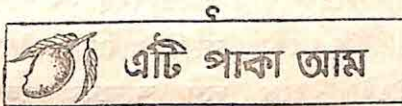 এটি পাকা আম